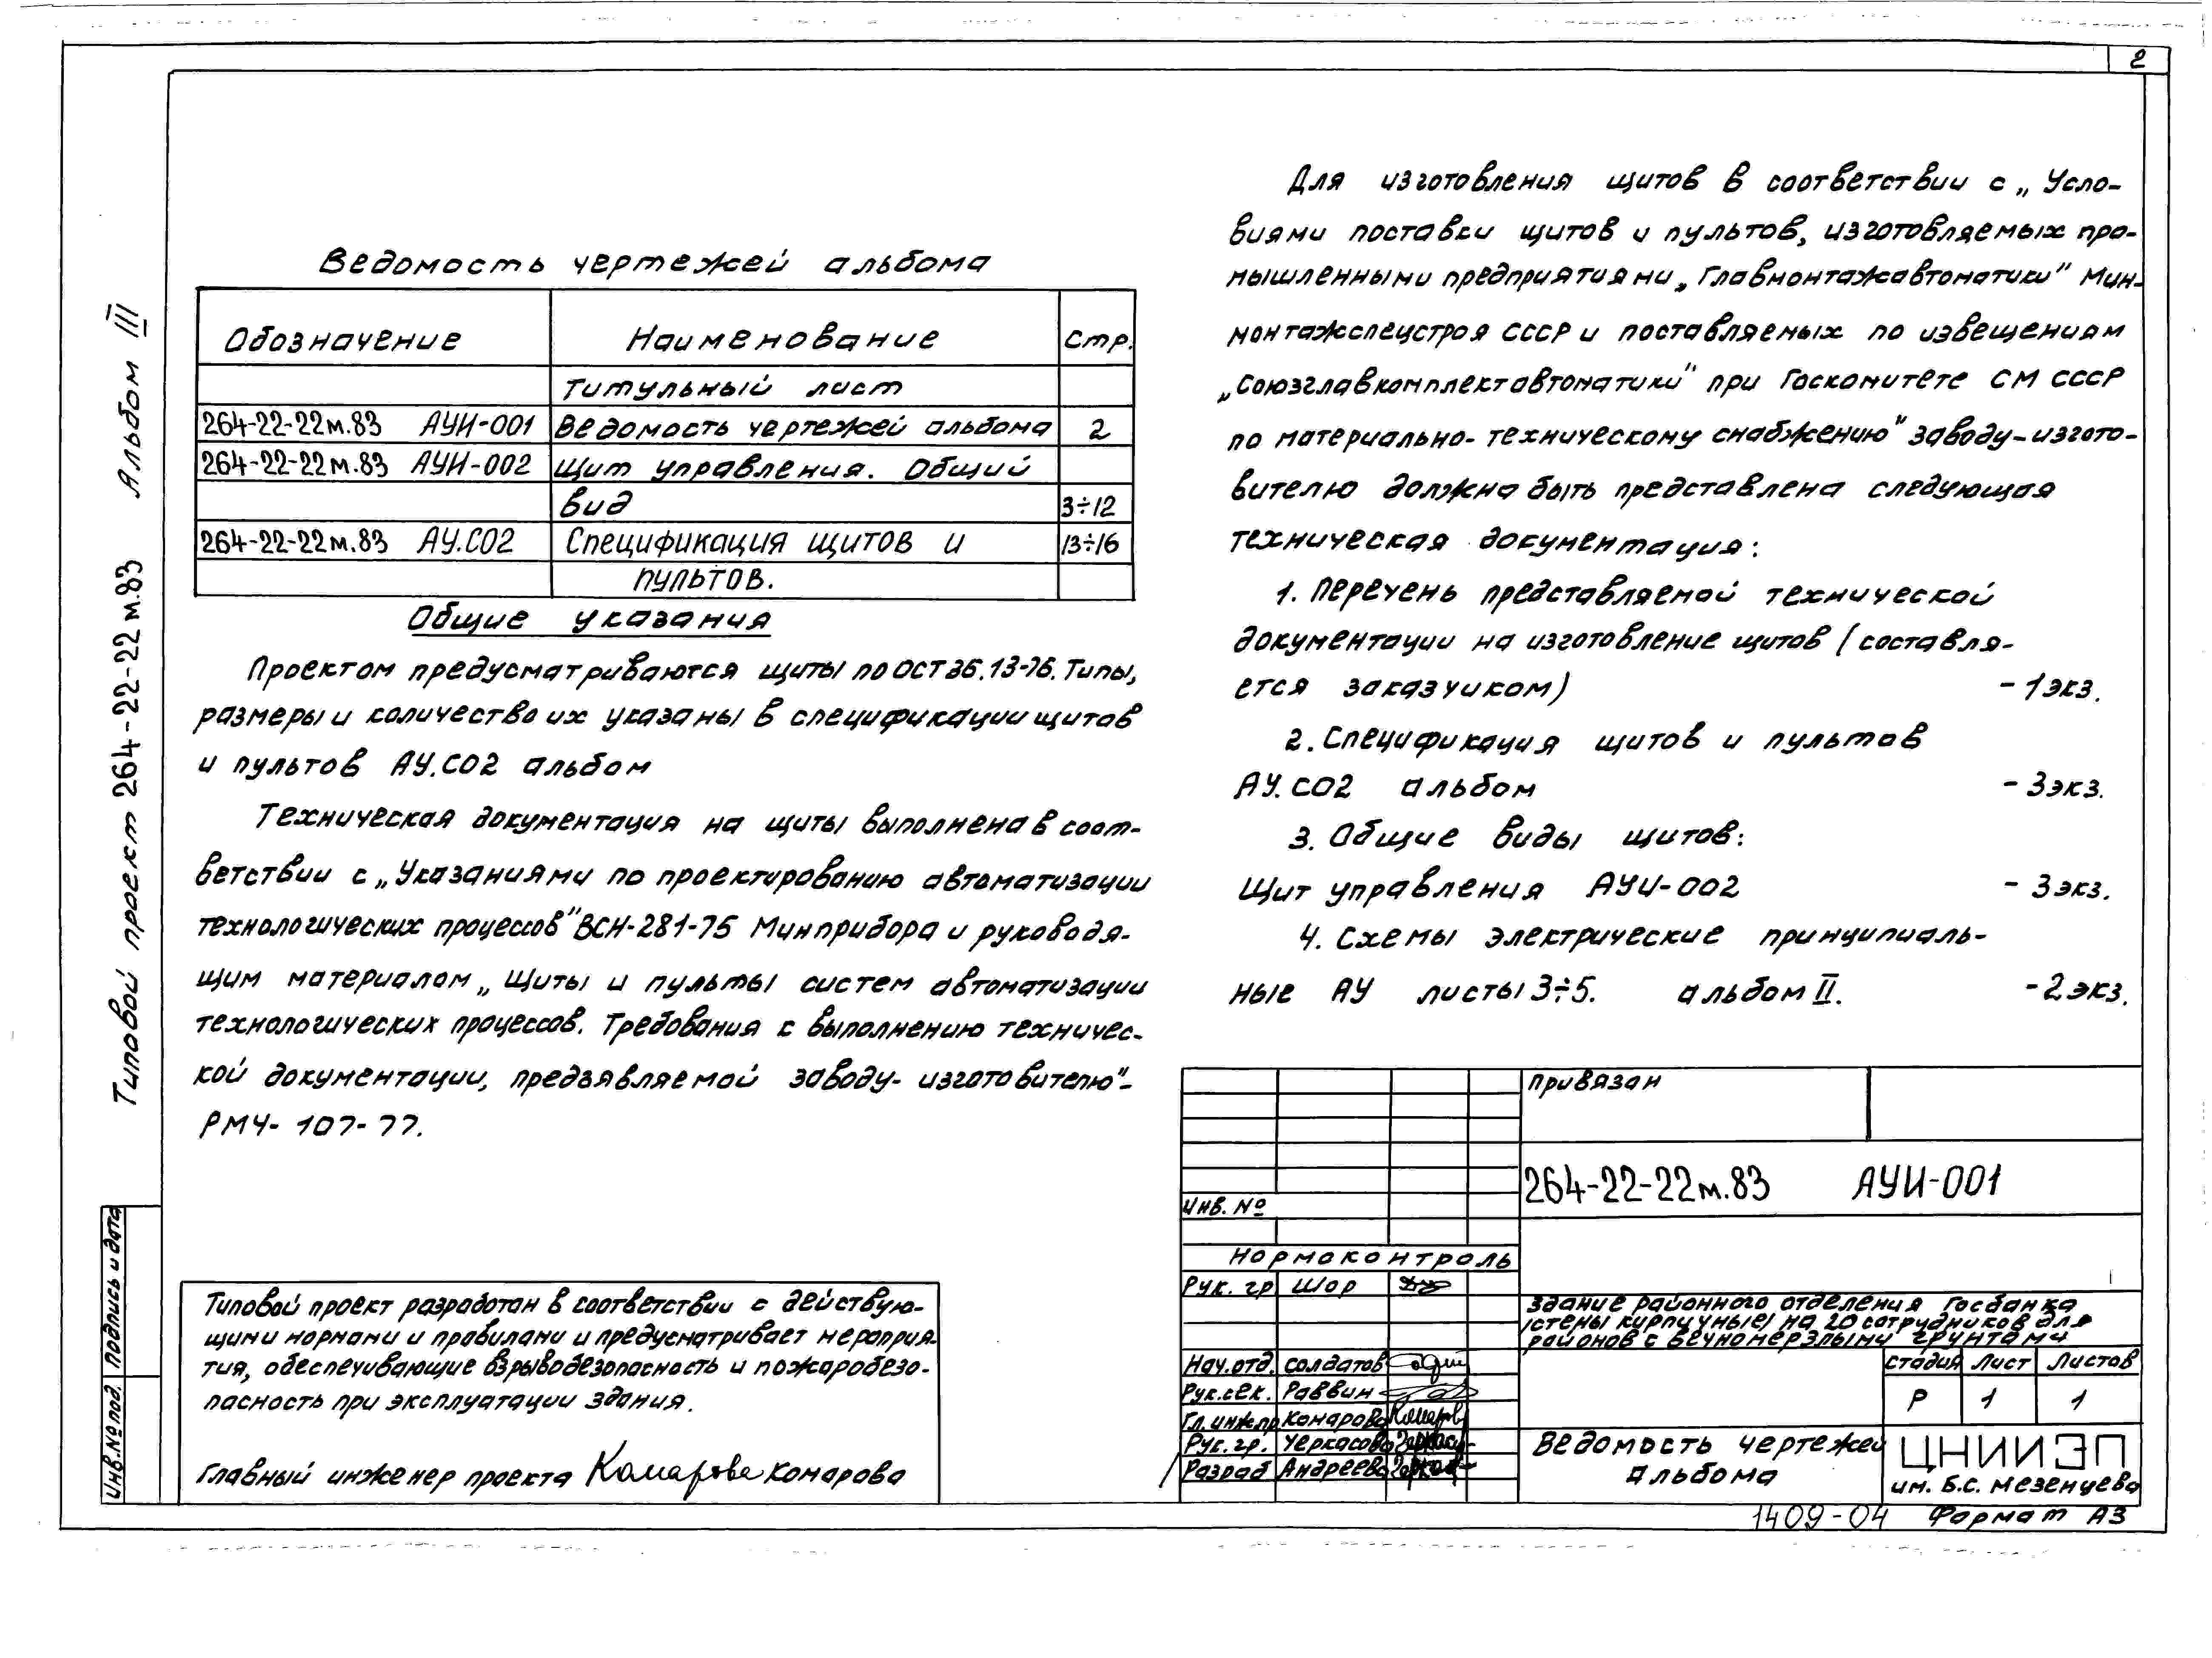 2
Типовой проект 264-22-22м.83 Альбом III
Ведомость чертежей альбома
Обозначение Наименование Стр.
Титульный лист
264-22-22м.83 АУИ-001 Ведомость чертежей альбома 2
264-22-22м.83 АУИ-002 Щит управления. Общий
вид 3÷12
264-22-22м.83 АУ.СО2 Спецификация щитов и 13÷16
пультов.
Общие указания
Проектом предусматриваются щиты по ОСТ 36.13-76. Типы,
размеры и количество их указаны в спецификации щитов
и пультов АУ.СО2 альбом
Техническая документация на щиты выполнена в соот-
ветствии с „Указаниями по проектированию автоматизации
технологических процессов" ВСН-281-75 Минприбора и руководя-
щим материалом „Щиты и пульты систем автоматизации
технологических процессов. Требования к выполнению техничес-
кой документации, предъявляемой заводу-изготовителю"-
РМ4-107-77.
Типовой проект разработан в соответствии с действую-
щими нормами и правилами и предусматривает мероприя-
тия, обеспечивающие взрывобезопасность и пожаробезо-
пасность при эксплуатации здания.
Главный инженер проекта Комарова Комарова
Инв.№ под. Подпись и дата
Для изготовления щитов в соответствии с „Усло-
виями поставки щитов и пультов, изготовляемых про-
мышленными предприятиями „Главмонтажавтоматики" Мин-
монтажспецстроя СССР и поставляемых по извещениям
„Союзглавкомплектавтоматики" при Госкомитете СМ СССР
по материально-техническому снабжению" заводу-изгото-
вителю должна быть представлена следующая
техническая документация:
1. Перечень представляемой технической
документации на изготовление щитов (составля-
ется заказчиком) - 1 экз.
2. Спецификация щитов и пультов
АУ.СО2 альбом - 3 экз.
3. Общие виды щитов:
Щит управления АУИ-002 - 3 экз.
4. Схемы электрические принципиаль-
ные АУ листы 3÷5. альбом II. - 2 экз.
Привязан
Инв. №
264-22-22м.83 АУИ-001
Нормоконтроль
Рук. гр Шор
Здание районного отделения Госбанка
(стены кирпичные) на 20 сотрудников для
районов с вечномерзлыми грунтами
Нач.отд. Солдатов
Рук.сек. Раввин
Гл.инж.пр Комарова Комаров
Рук. гр. Черкасова
Разраб Андреева
Стадия Лист Листов
Р 1 1
Ведомость чертежей
альбома
ЦНИИЭП
им. Б.С. Мезенцева
1409-04 Формат А3